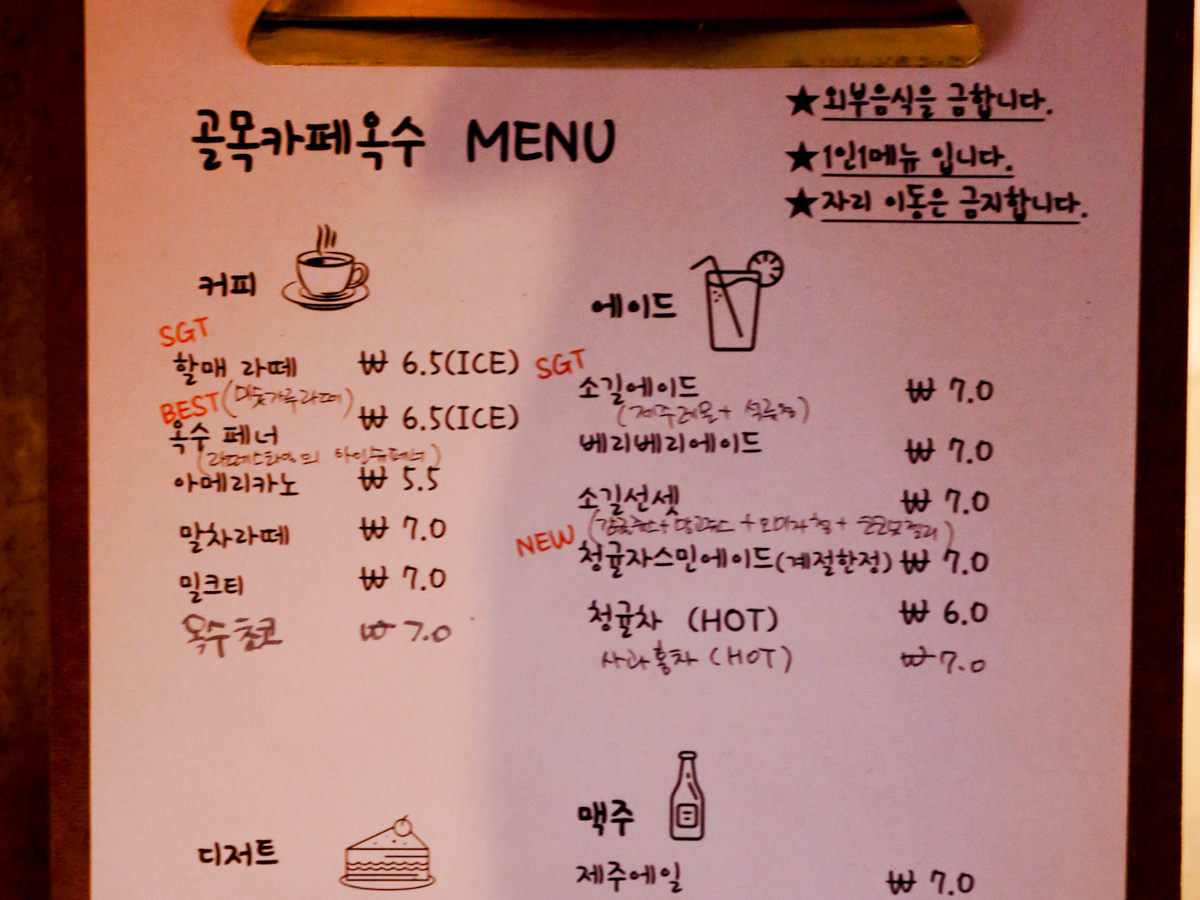 골목카페옥수 MENU
★외부음식을 금합니다.
★1인1메뉴 입니다.
★자리 이동은 금지합니다.
커피
SGT
할매 라떼 ₩ 6.5(ICE)
(미숫가루라떼)
BEST
옥수 페너 ₩ 6.5(ICE)
(라떼스타일의 아인슈페너)
아메리카노 ₩ 5.5
말차라떼 ₩ 7.0
밀크티 ₩ 7.0
옥수초코 ₩ 7.0
에이드
SGT
소길에이드 ₩ 7.0
(제주레몬+
베리베리에이드 ₩ 7.0
소길선셋 ₩ 7.0
NEW
청귤자스민에이드(계절한정) ₩ 7.0
청귤차 (HOT) ₩ 6.0
사과홍차 (HOT) ₩ 7.0
디저트
맥주
제주에일 ₩ 7.0